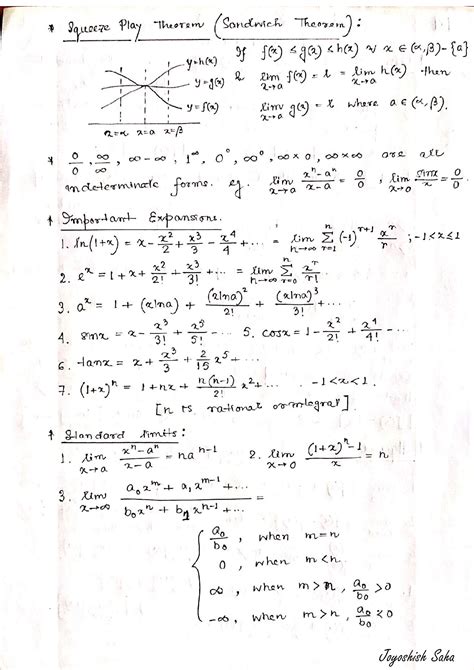 * Squeeze Play Theorem (Sandwich Theorem):
If f(x) ≤ g(x) ≤ h(x) ∀ x ∈ (α,β) - {a}
y=h(x)
y=g(x)
y=f(x)
x=α x=a x=β
& lim_{x→a} f(x) = l = lim_{x→a} h(x) then
lim_{x→a} g(x) = l where a ∈ (α,β).
* 0/0, ∞/∞, ∞-∞, 1^∞, 0^0, ∞^0, ∞×0, ∞×∞ are all
indeterminate forms. eg. lim_{x→a} (x^n-a^n)/(x-a) = 0/0, lim_{x→0} sinx/x = 0/0.
* Important Expansions.
1. ln(1+x) = x - x^2/2 + x^3/3 - x^4/4 + ... = lim_{n→∞} Σ_{r=1}^{n} (-1)^{r+1} x^r/r ; -1<x≤1
2. e^x = 1 + x + x^2/2! + x^3/3! + ... = lim_{n→∞} Σ_{r=0}^{n} x^r/r!
3. a^x = 1 + (xlna) + (xlna)^2/2! + (xlna)^3/3! + ...
4. sinx = x - x^3/3! + x^5/5! - ... 5. cosx = 1 - x^2/2! + x^4/4! - ...
6. tanx = x + x^3/3 + 2/15 x^5 + ...
7. (1+x)^n = 1 + nx + n(n-1)/2! x^2 + ... -1<x<1
[n is rational or integral].
* Standard limits:
1. lim_{x→a} (x^n-a^n)/(x-a) = na^{n-1} 2. lim_{x→0} ((1+x)^n-1)/x = n
3. lim_{x→∞} (a_0x^m + a_1x^{m-1} + ...)/(b_0x^n + b_1x^{n-1} + ...) =
a_0/b_0, when m=n
0, when m<n.
∞, when m>n, a_0/b_0 >0
-∞, when m>n, a_0/b_0 <0
Joyoshish Saha